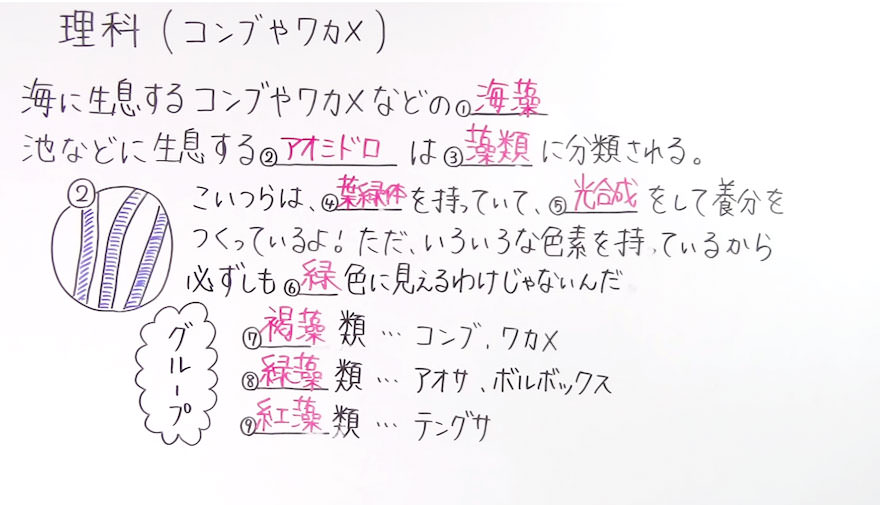 理科(コンブやワカメ)
海に生息するコンブやワカメなどの①海藻
池などに生息する②アオミドロは③藻類に分類される。
②
こいつらは、④葉緑体を持っていて、⑤光合成をして養分を
つくっているよ!ただ、いろいろな色素を持っているから
必ずしも⑥緑色に見えるわけじゃないんだ
グループ
⑦褐藻類…コンブ、ワカメ
⑧緑藻類…アオサ、ボルボックス
⑨紅藻類…テングサ